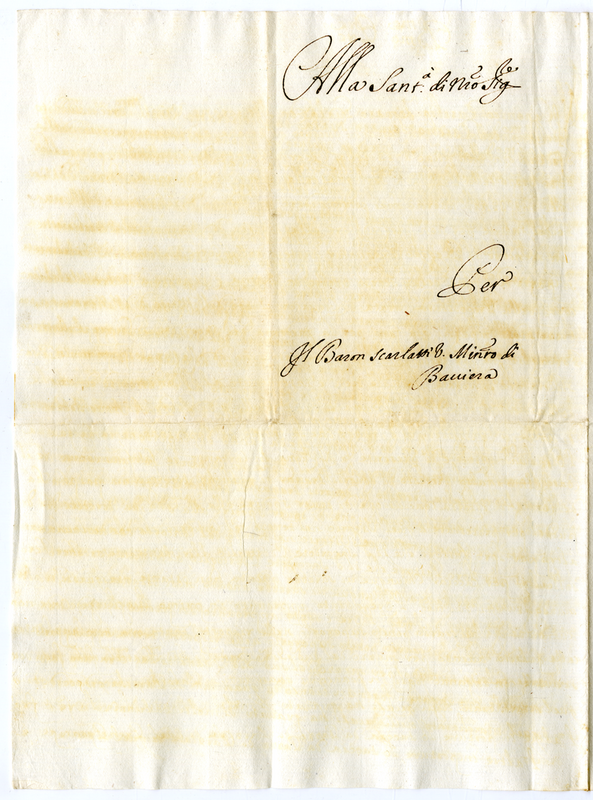 Alla Sant.à di Nro Sigre
Per
Il Baron Scarlatti Minro di
Baviera